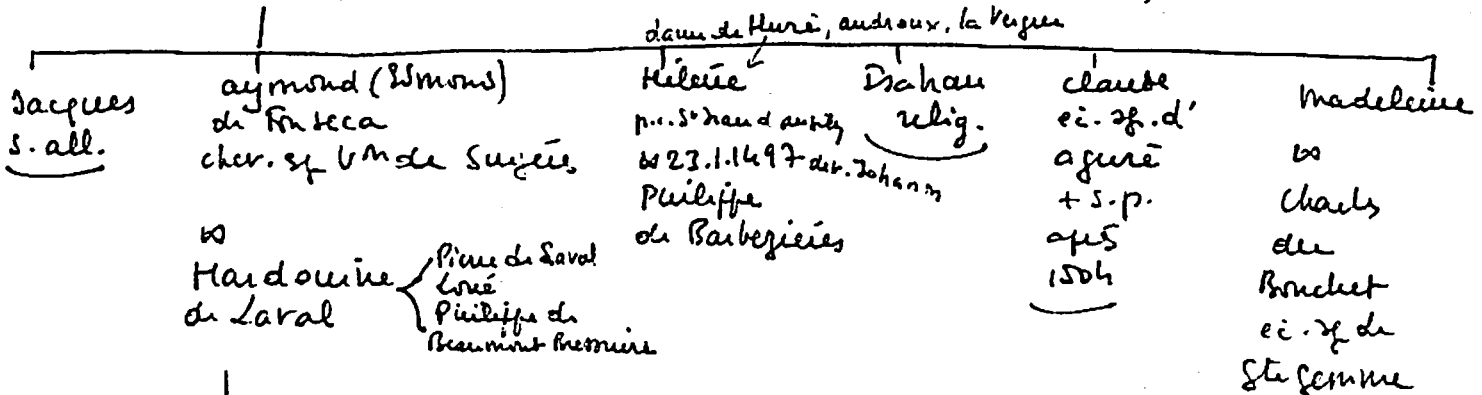 dame de Huré, andraux, la Vergne
Jacques
s. all.
aymond (Esmons)
de Fonseca
chev. sg Vn de Surgères
∞
Hardouine
de Laval
Pierre de Laval
Loué
Philippe de
Beaumont Bressuire
Hélène
∞ 23.1.1497
Philippe
de Barbezières
relig.
claude
éc. sg. d'
aguré
+ s.p.
après
1504
Madeleine
∞
Charles
du
Bouchet
éc. sg de
Ste Gemme